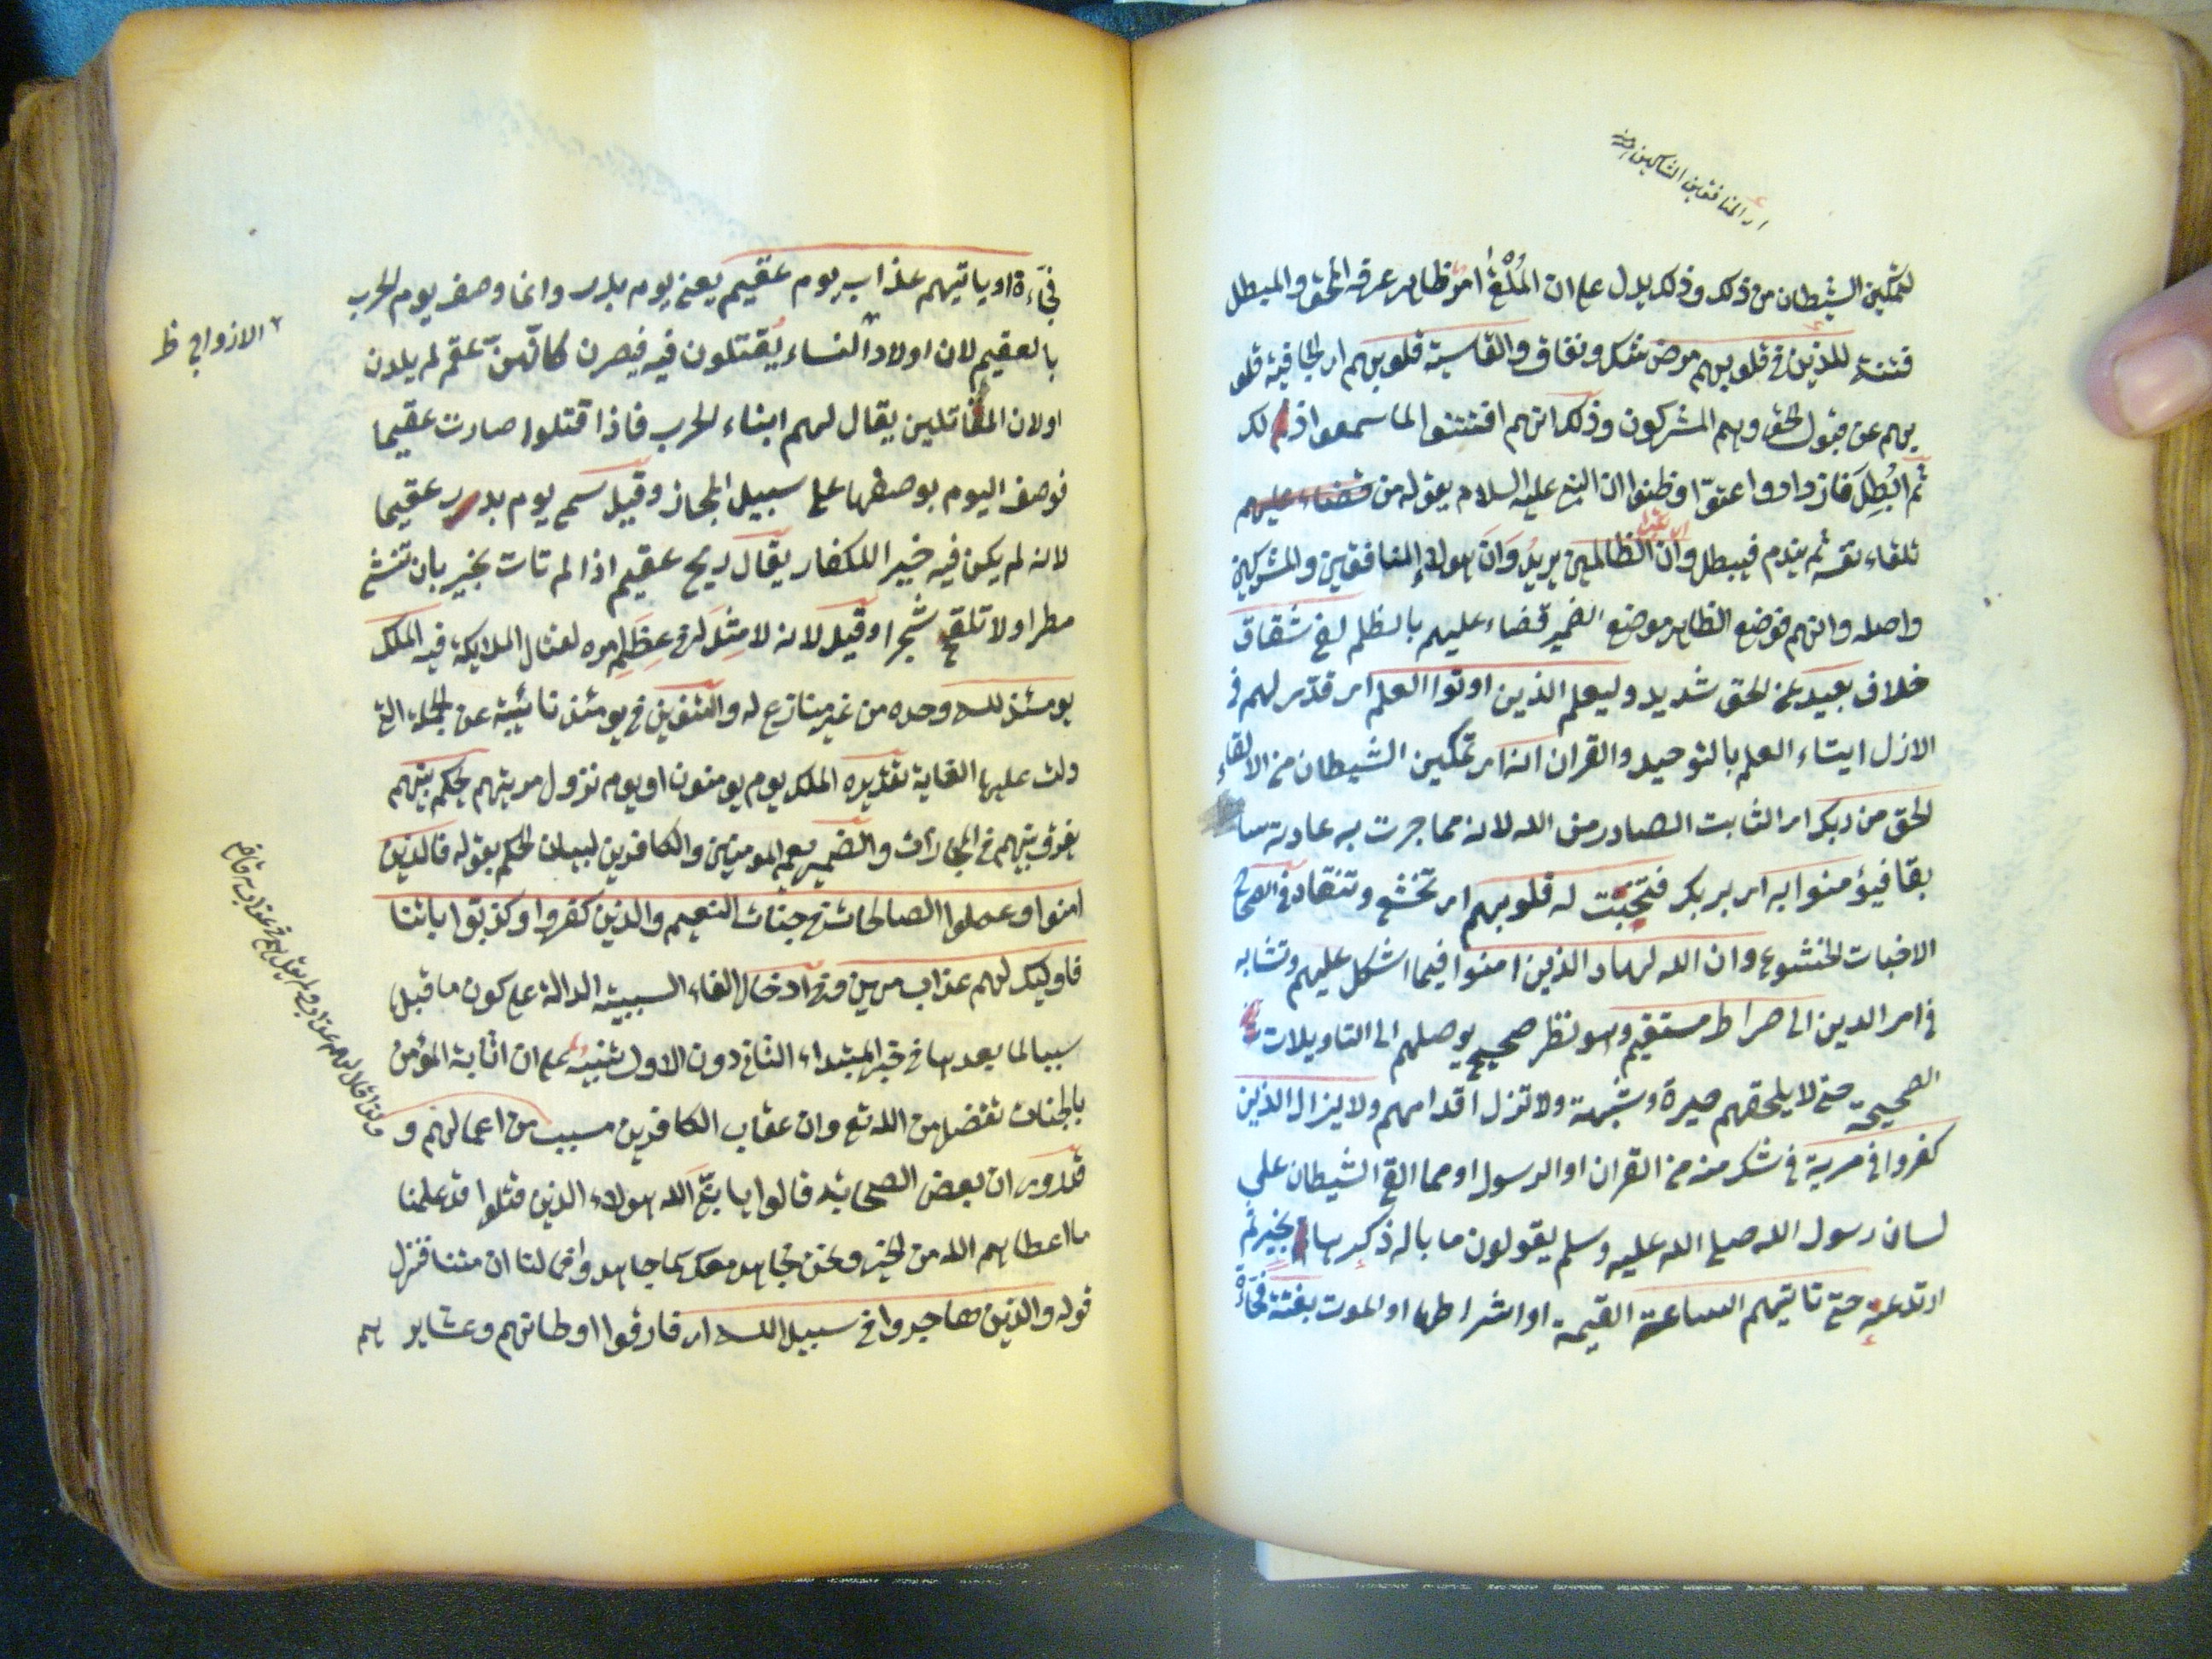 ار المنافقين الشاكين
لتمكين الشيطان من ذلك وذلك يدل على ان المُلْقى امر ظاهر عرفه المحق والمبطل
فتنة للذين في قلوبهم مرض شك ونفاق والقاسية قلوبهم اى الجافية قلو
بهم عن قبول الحق وهم المشركون وذلك انهم افتتنوا لما سمعوا ذلك
ثم ابُطِلَ فازدادوا عتوّا وظنوا ان النبى عليه السلام يقوله من
تلقاء نفسه ثم يندم فيبطل وان الظالمين يريد وان هولاء المنافقين والمشركين
واصله وانهم فوضع الظاهر موضع الضمير قضاء عليهم بالظلم لفى شقاق
خلاف بعيد عن الحق شديد وليعلم الذين اوتوا العلم اى قدّر لهم فى
الازل ايتاء العلم بالتوحيد والقران انه اى تمكين الشيطان من الالقاء
الحق من ربك اى الثابت الصادر من الله لانه مما جرت به عادته سا
بقا فيؤمنوا به اى بربك فتخبت له قلوبهم اى تخشع وتنقاد فى الصحاح
الاخبات الخشوع وان الله لهاد الذين امنوا فيما اشكل عليهم وتشابه
فى امر الدين الى صراط مستقيم وهو نظر صحيح يوصلهم الى التاويلات
الصحيحة حتى لا يلحقهم حيرة وشبهة ولا تزل اقدامهم ولا يزال الذين
كفروا فى مرية فى شك منه من القران او الرسول او مما القى الشيطان على
لسان رسول الله صلى الله عليه وسلم يقولون ما باله ذكرها بخير ثم
ارتد عنه حتى تاتيهم الساعة القيمة او اشراطها او الموت بغتة فجاءة
فجاءة او ياتيهم عذاب يوم عقيم يعنى يوم بدر وانما وصف يوم الحرب
بالعقيم لان اولاد النساء يُقتلون فيه فيصرن كانّهنّ عقم لم يلدن
اولان المقاتلين يقال لهم ابناء الحرب فاذا قتلوا صارت عقيما
فوصف اليوم بوصفها على سبيل المجاز وقيل سمى يوم بدر عقيما
لانه لم يكن فيه خيرا للكفار يقال ريح عقيم اذا لم تات بخير بان تنشئ
مطرا ولا تلقح شجرا وقيل لانه لا مِثل له فى عِظَم امره لقتال الملايكة فيه الملك
يومئذ لله وحده من غير منازع له والتنوين فى يومئذ نائبة عن الجملة التى
دلت عليها الغاية تقديره الملك يوم يومنون او يوم نزول مريتهم يحكم بينهم
يفرق بينهم فى المجازاث والضمير يعم المومنين والكافرين لبيان الحكم بقوله فالذين
امنوا وعملوا الصالحات فى جنات النعيم والذين كفروا وكذبوا باياتنا
فاوليك لهم عذاب مهين وفى ادخال الفاء السببية الدالة على كون ما قبل
سببا لما بعدها فى خبر المبتداء الثانى دون الاول تنبيه على ان اثابة المؤمن
بالجنات تفضل من الله تع وان عقاب الكافرين مسبب من اعمالهم و
قد روى ان بعض الصحابة قالوا يا نبىّ الله هولاء الذين قتلوا قد علمنا
ما اعطاهم الله من الخير ونحن نجاهد معك كما جاهدوا فما لنا ان متنا فنزل
قوله والذين هاجروا فى سبيل الله اى فارقوا اوطانهم وعشاير هم
ولذا قال لهم عذاب ولم يقل هم فى عذاب قاضى